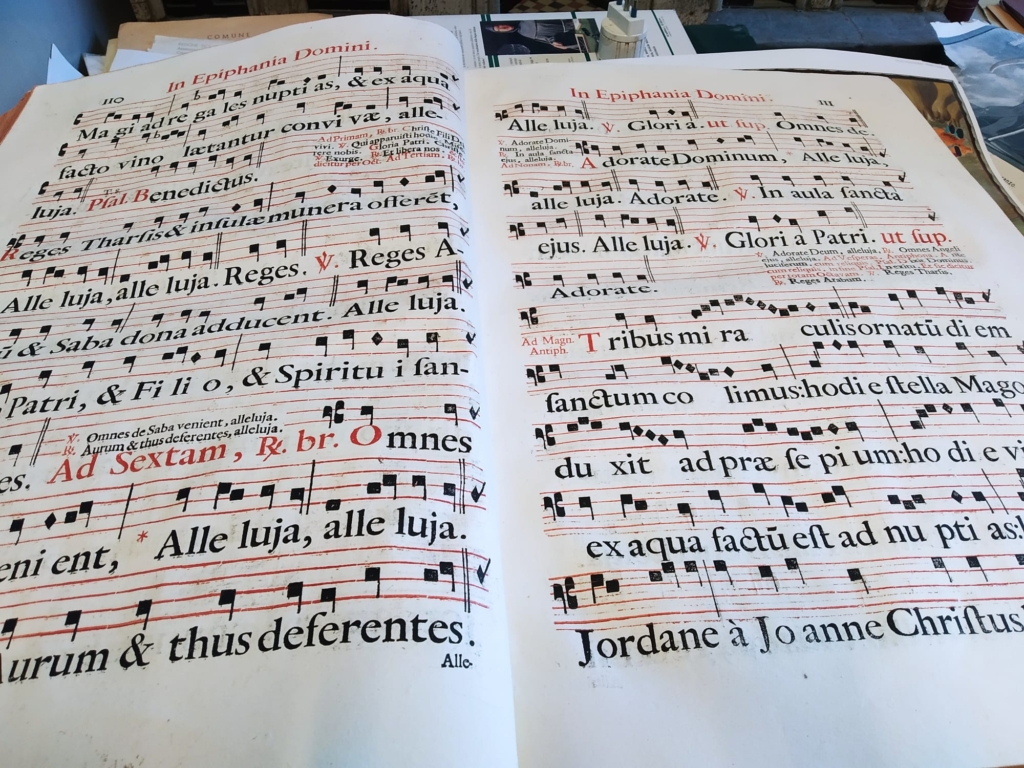 COMUNE
In Epiphania Domini.
110
Ma gi ad re ga les nupti as, & ex aqua
facto vino lætantur convi væ, alle-
Ad Primam, ℟. br. Christe Fili D
vivi. ℣. Qui apparuisti hod
rere nobis. Gloria Patri.
℣. Exurge. ℟. Et libera nos
dicitur per Oct. Ad Tertiam, ℟.
luja. Psal. Benedictus.
Reges Tharsis & insulæ munera offerẽt,
Alle luja, alle luja. Reges. ℣. Reges A-
& Saba dona adducent. Alle luja.
Patri, & Fi li o, & Spiritu i san-
℣. Omnes de Saba venient, alleluja.
℟. Aurum & thus deferentes, alleluja.
es. Ad Sextam, ℟. br. Omnes
eni ent, * Alle luja, alle luja.
Aurum & thus deferentes.
Alle-
In Epiphania Domini.
111
Alle luja. ℣. Glori a. ut sup. Omnes de
℣. Adorate Domi-
num, alleluja.
℟. In aula sancta
ejus, alleluja.
Ad Nonam, ℟. br.
Adorate Dominum, Alle luja.
alle luja. Adorate. ℣. In aula sancta
ejus. Alle luja. ℣. Glori a Patri. ut sup.
℣. Adorate Deum, alleluja. ℟. Omnes Angeli
ejus, alleluja. Ad Vesperas,
per totam Octavam. ℣. Reges Tharsis.
℟. Reges Arabum.
Adorate.
Ad Magn.
Antiph.
Tribus mi ra culis ornatũ di em
sanctum co limus: hodi e stella Mago
du xit ad præ se pi um: ho di e vi
ex aqua factũ est ad nu pti as:
Jordane à Jo anne Christus